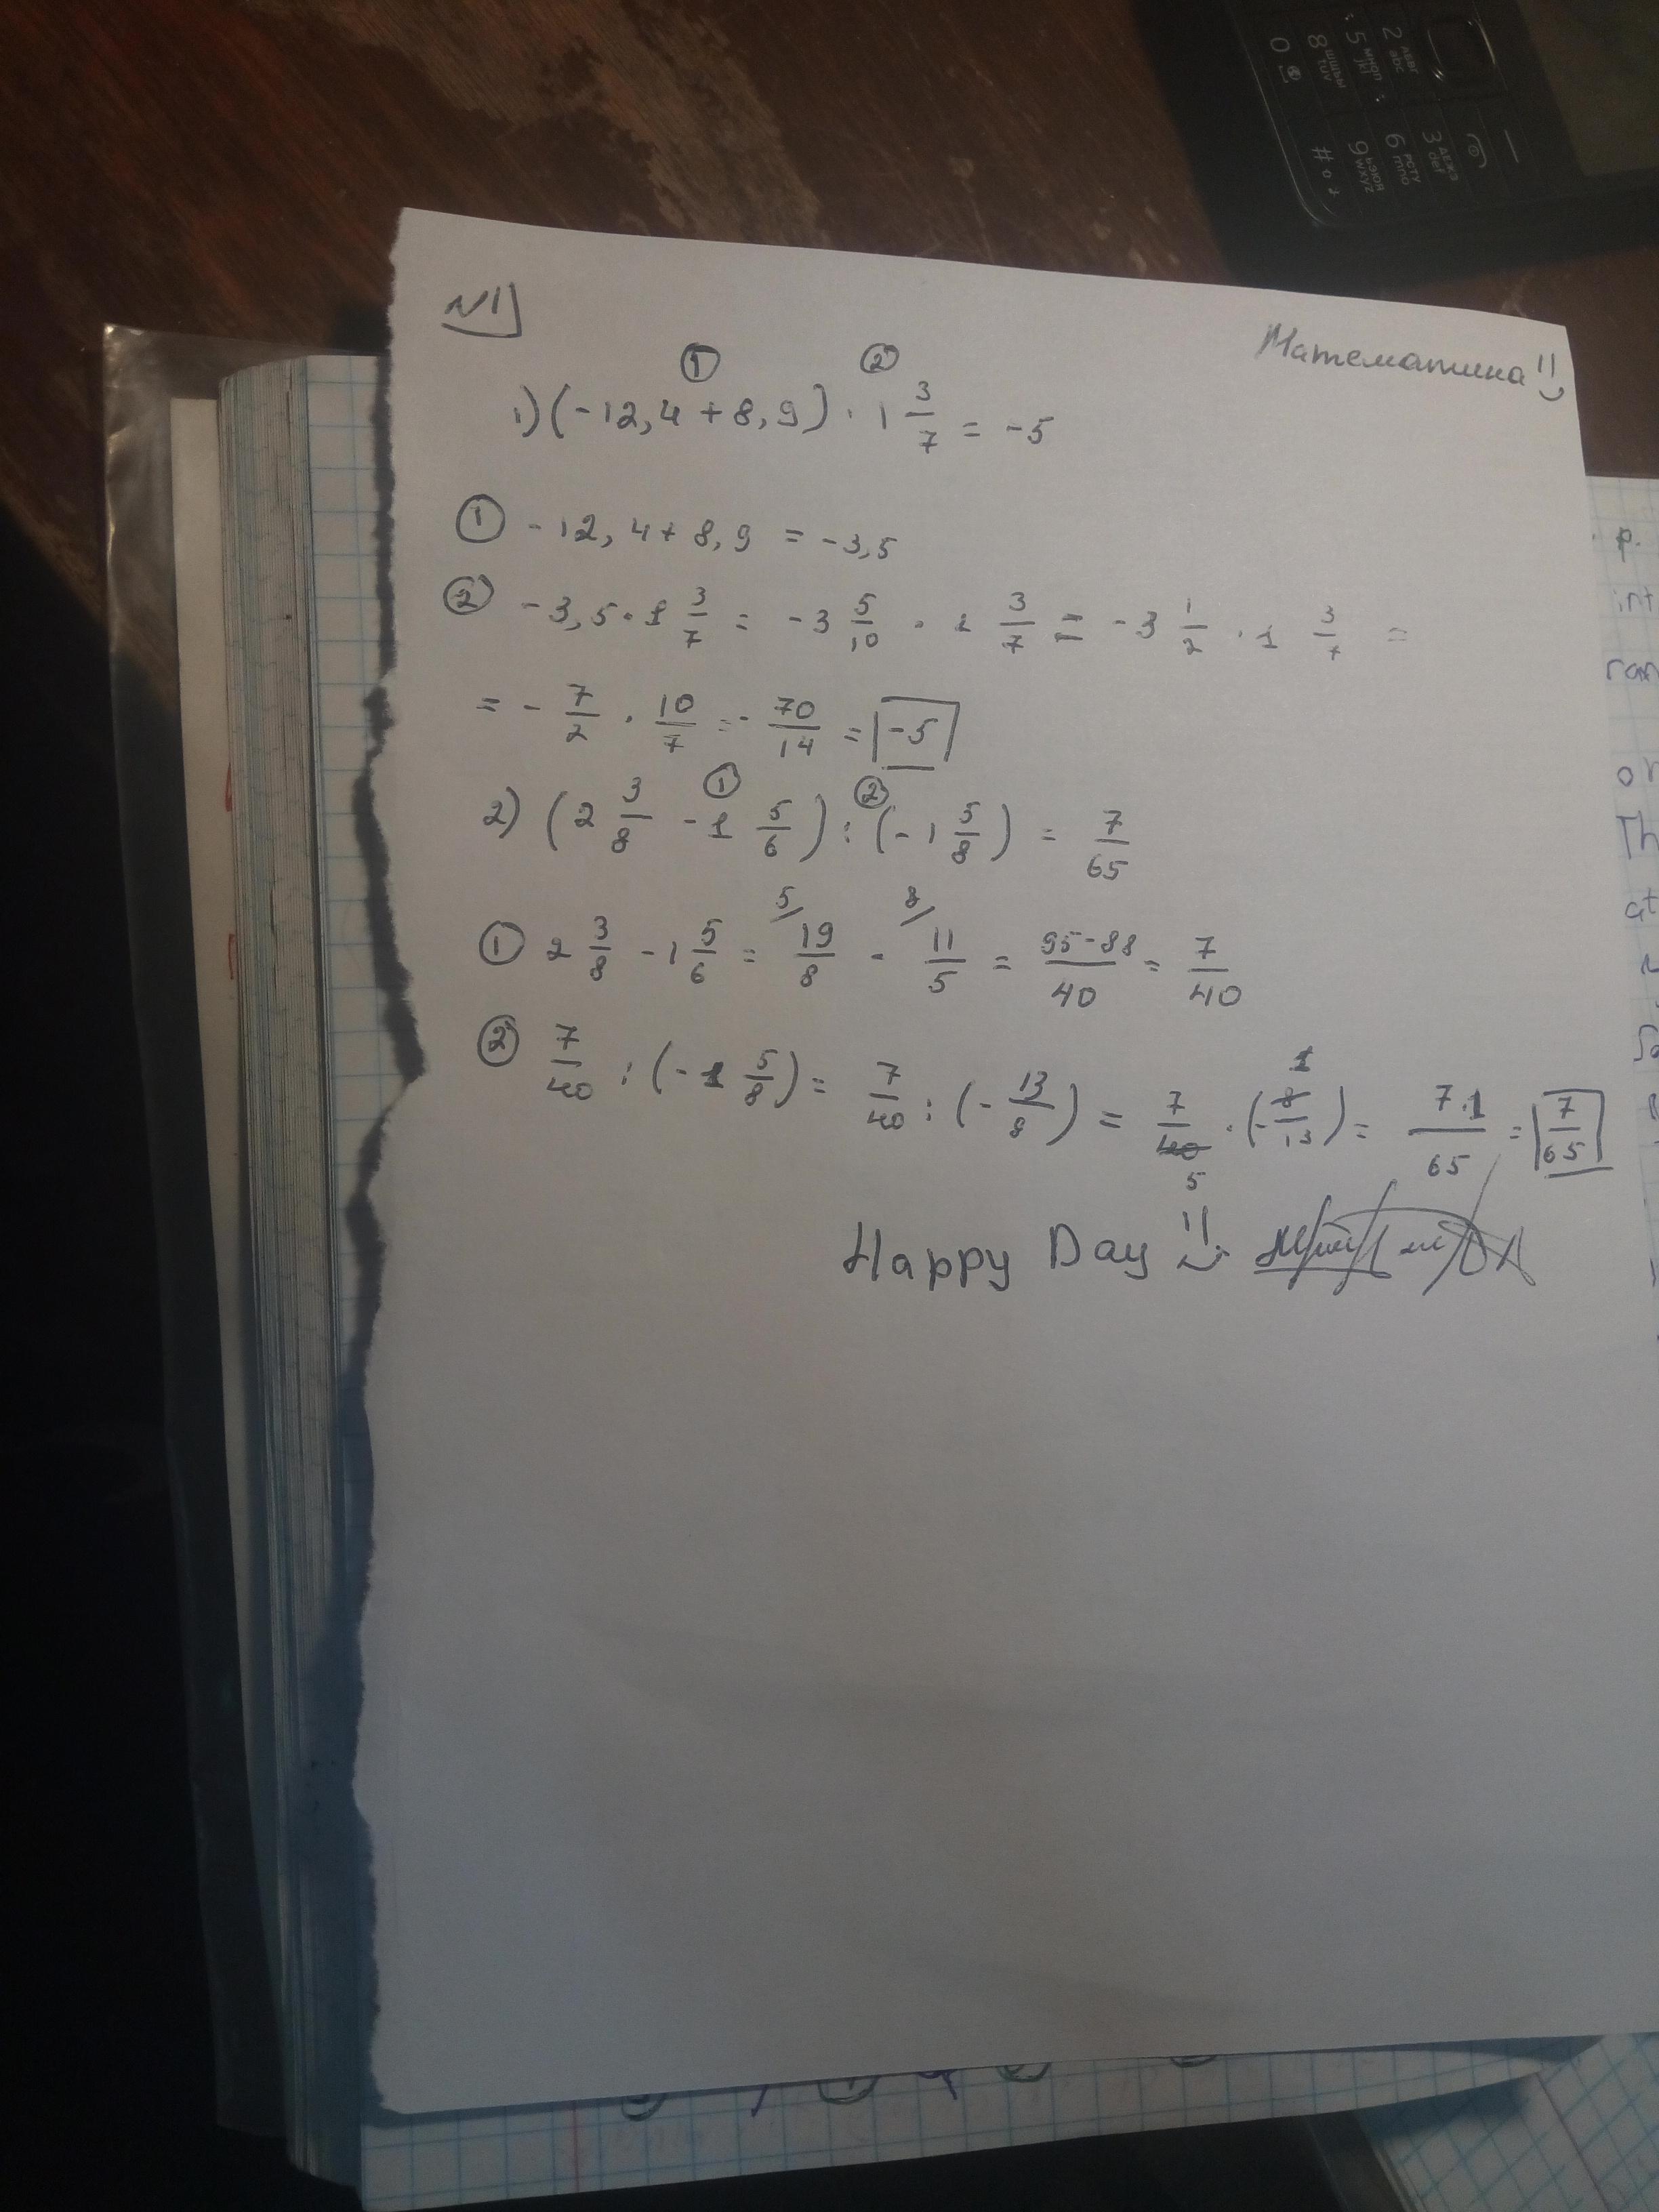 N1
Математика
① ②
1) (-12,4 + 8,9) · 1 3/7 = -5
① -12,4 + 8,9 = -3,5
② -3,5 · 1 3/7 = -3 5/10 · 1 3/7 = -3 1/2 · 1 3/7 =
= - 7/2 · 10/7 = - 70/14 = -5
① ②
2) (2 3/8 - 1 5/6) : (-1 5/8) = 7/65
① 2 3/8 - 1 5/6 = 5/ 19/8 - 8/ 11/5 = 95-88/40 = 7/40
② 7/40 : (-1 5/8) = 7/40 : (- 13/8) = 7/40 5 · (- 8/13 1) = 7·1/65 = 7/65
Happy Day
2 abc
5 jkl
8 tuv
0
3 def
6 mno
9 wxyz
#
р.
int
ran
or
Th
at